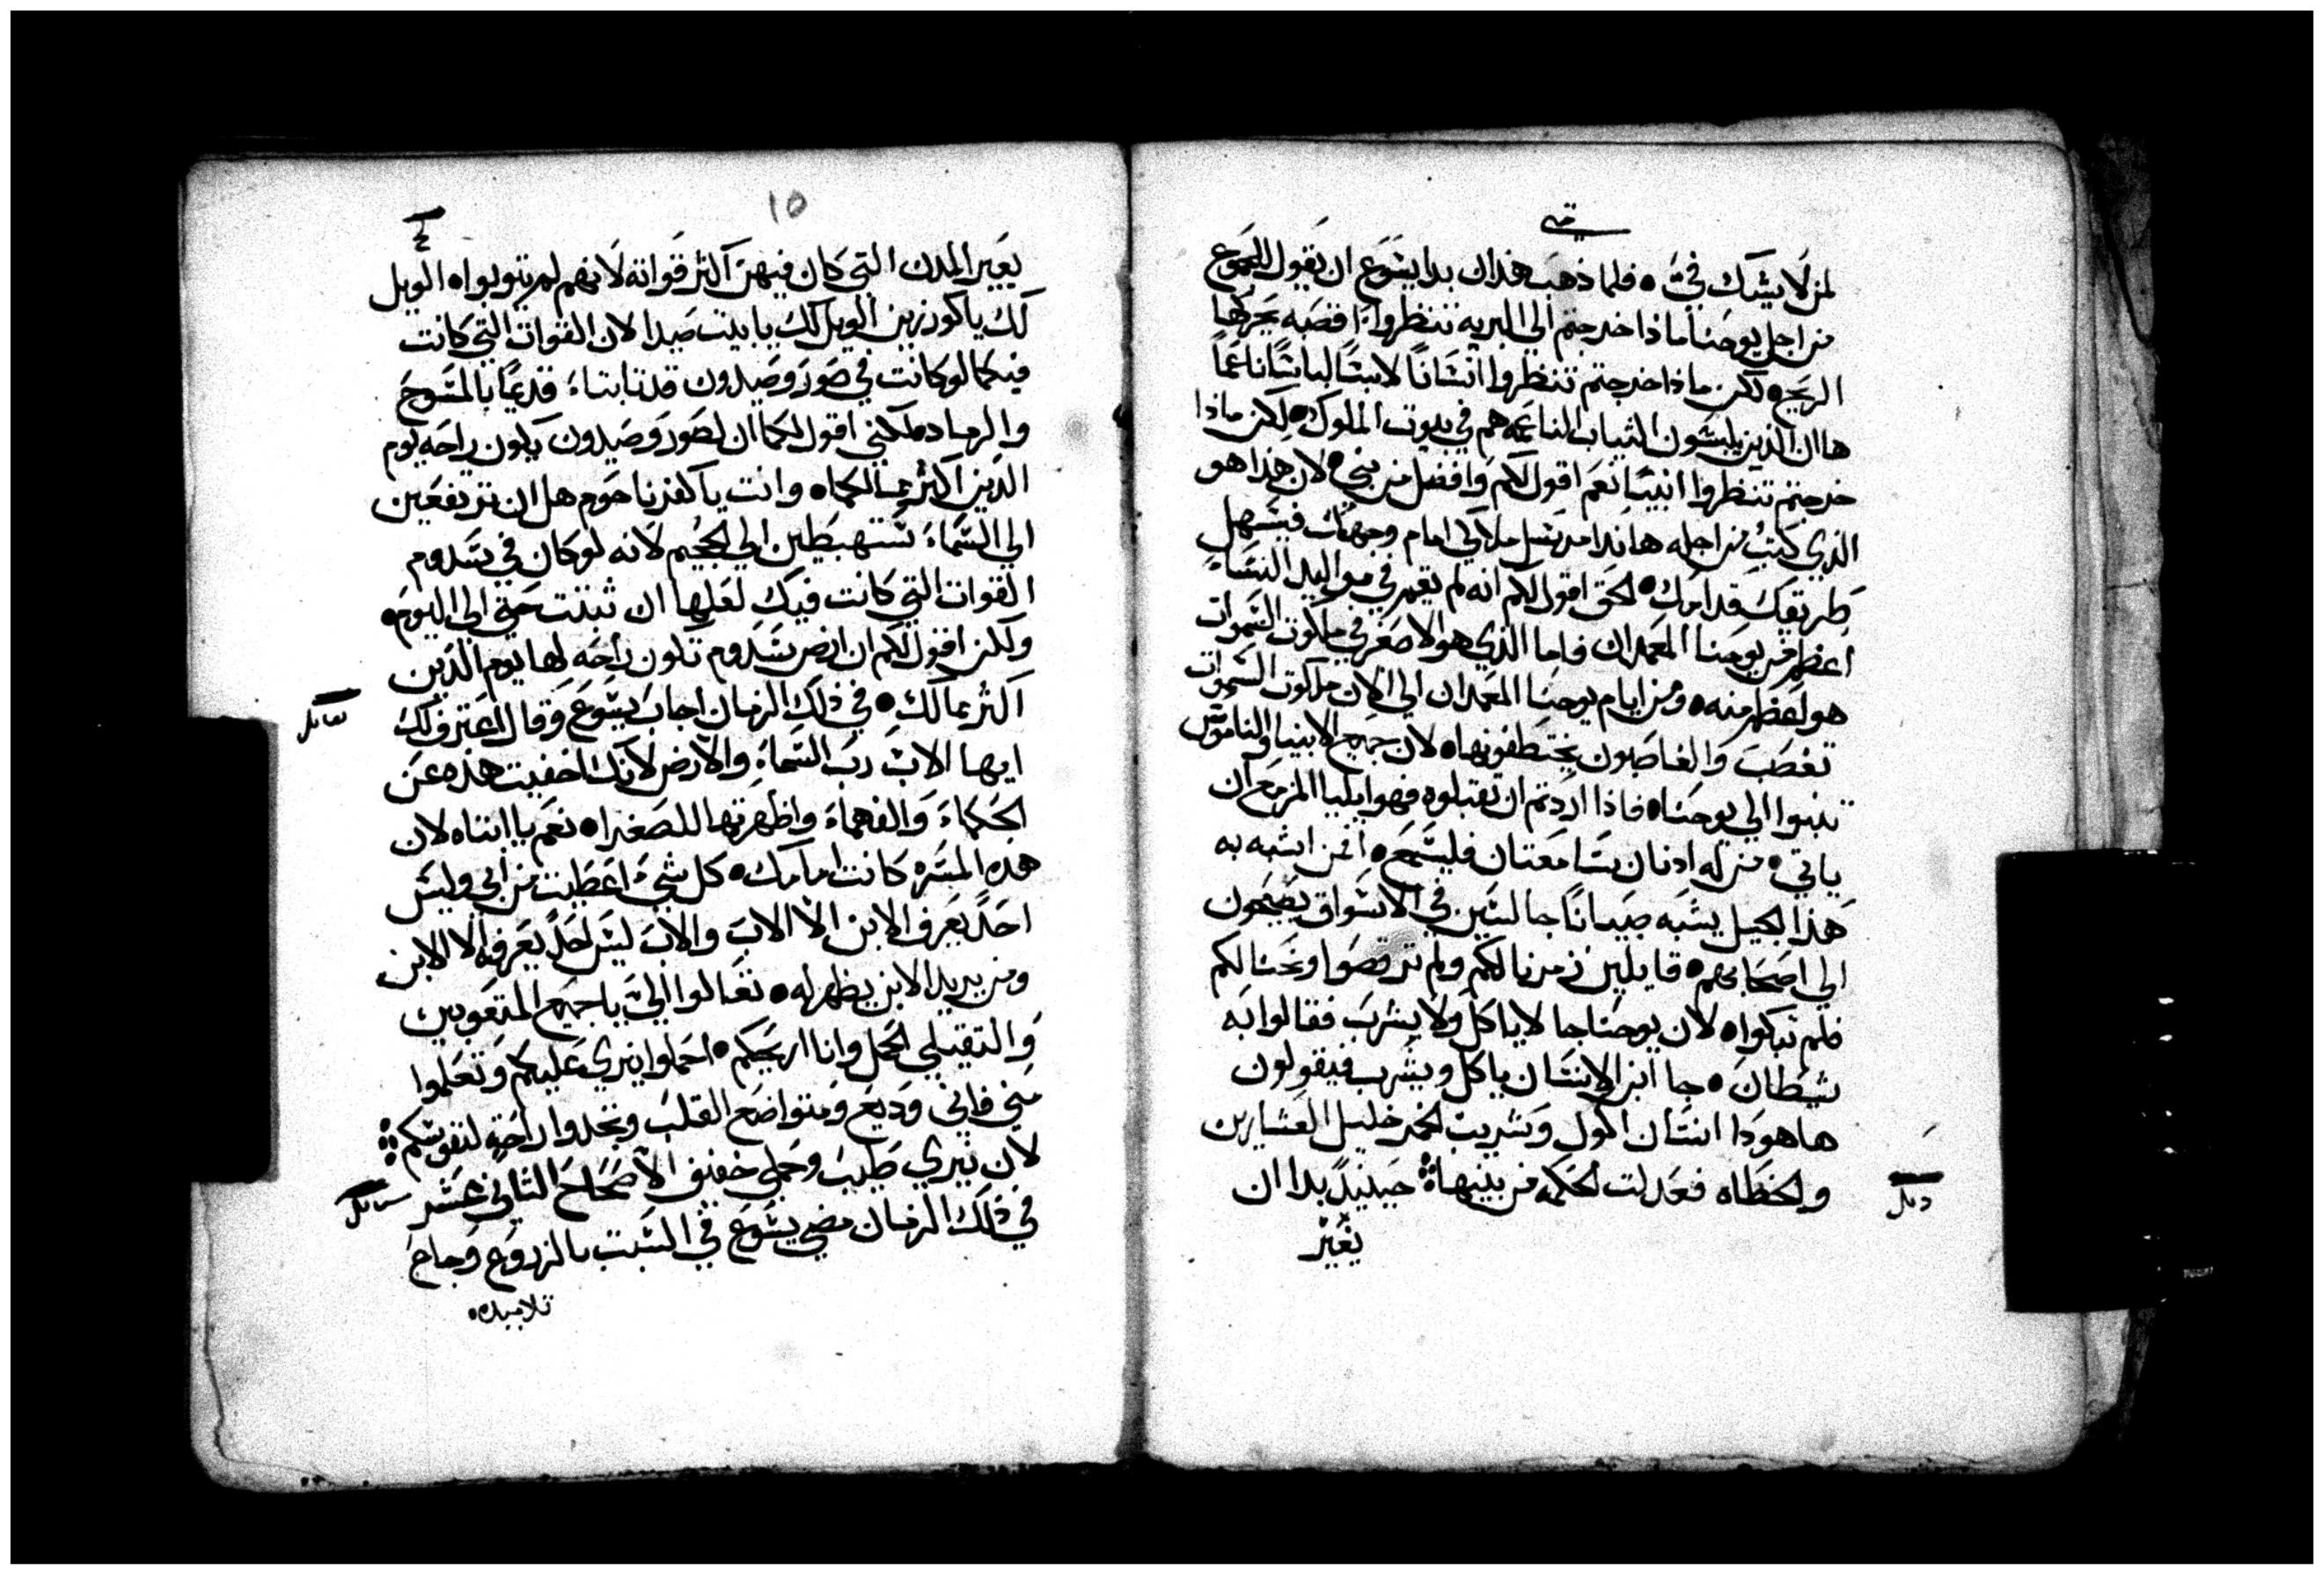 متى
لمن لا يشك فيَّ ۰ فلما ذهب هذان بدا يشوع ان يقول للجموع
من اجل يوحنا ماذا خرجتم الي البريه تنظروا اقصبه يحركها
الريح ۰ لكن ماذا خرجتم تنظروا انسانًا لابسًا لباسًا ناعمًا
ها ان الذين يلبسون الثياب الناعمه هم في بيوت الملوك ۰ لكن ماذا
خرجتم تنظروا انبيًا نعم اقول لكم وافضل من نبي ۰ لان هذا هو
الذي كتب من اجله هانذا مرسل ملاكي امام وجهك فيسهل
طريقك قدامك ۰ الحق اقول لكم انه لم يقم في مواليد النساء
اعظم من يوحنا المعمدان فاما الذي هو الاصغر في ملكوت السموات
هو اعظم منه ۰ ومن ايام يوحنا المعمدان الي الان ملكوت السموات
تغصب والغاصبون يختطفونها ۰ لان جميع الانبيا والناموس
تنبوا الي يوحنا ۰ فاذا اردتم ان تقبلوه فهو ايليا المزمع ان
ياتي ۰ من له اذنان سامعتان فليسمع ۰ لمن اشبه به
هذا الجيل يشبه صبيانًا جالسين في الاسواق يصيحون
الي اصحابهم ۰ قايلين زمرنا لكم ولم ترقصوا ونحنا لكم
فلم تبكوا ۰ لان يوحنا جا لا ياكل ولا يشرب فقالوا به
شيطان ۰ جا ابن الانسان ياكل ويشرب فيقولون
ها هوذا انسان اكول وشريب الخمر خليل العشارين
والخطاه فعدلت الحكمه من بنيها ۰ حينيذٍ بدا ان
يعير
١٥
يعير المدن التي كان فيهن اكثر قواته لانهم لم يتوبوا ۰ الويل
لك يا كورزين الويل لك يا بيت صيدا لان القوات التي كانت
فيكما لو كانت في صور وصيدون قد تابتا قديمًا بالمسوح
والرماد ۰ لكني اقول لكما ان لصور وصيدون يكون راحه يوم
الدين اكثر مما لكما ۰ وانت يا كفرناحوم هل ان ترتفعين
الي السماء ستهبطين الي الجحيم لانه لو كان في سدوم
القوات التي كانت فيك لعلها ان ثبتت حتي الي اليوم ۰
ولكن اقول لكم ان ارض سدوم تكون راحه لها يوم الدين
اكثر مما لك ۰ في ذلك الزمان اجاب يشوع وقال اعترف لك
ايها الاب رب السماء والارض لانك اخفيت هذه عن
الحكماء والفهماء واظهرتها للصغرا ۰ نعم يا ابتاه لان
هده المسره كانت امامك ۰ كل شيء اعطيت من ابي وليس
احدٌ يعرف الابن الا الاب والاب ليس احدٌ يعرفه الا الابن
ومن يريد الابن يظهر له ۰ تعالوا اليَّ يا جميع المتعوبين
والثقيلي الحمل وانا اريحكم ۰ احملوا نيري عليكم وتعلموا
مني فاني وديع ومتواضع القلب وتجدوا راحة لنفوسكم
لان نيري طيب وحملي خفيف الاصحاح الثاني عشر
في ذلك الزمان مضي يشوع في السبت بالزروع وجاع
تلاميده